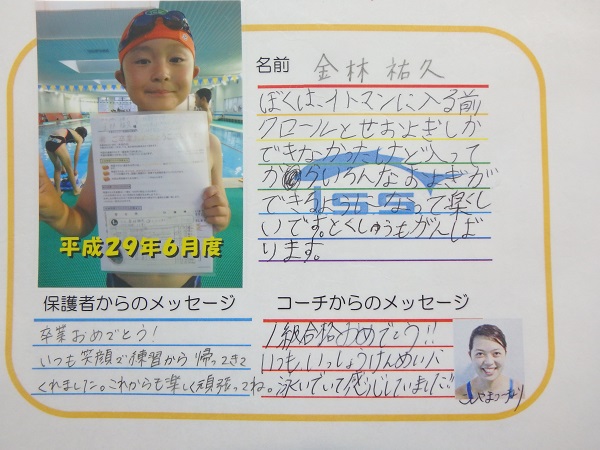 名前 金林祐久
ぼくは、イトマンに入る前
クロールとせおよぎしか
できなかったけど入って
からいろんなおよぎが
できるようになって楽し
いです。とくしゅうもがんば
ります。
平成29年6月度
保護者からのメッセージ
卒業おめでとう!
いつも笑顔で練習から帰ってきて
くれました。これからも楽しく頑張ってね。
コーチからのメッセージ
1級合格おめでとう!!
いつも、いっしょうけんめいに
泳いでいて感心していました!!